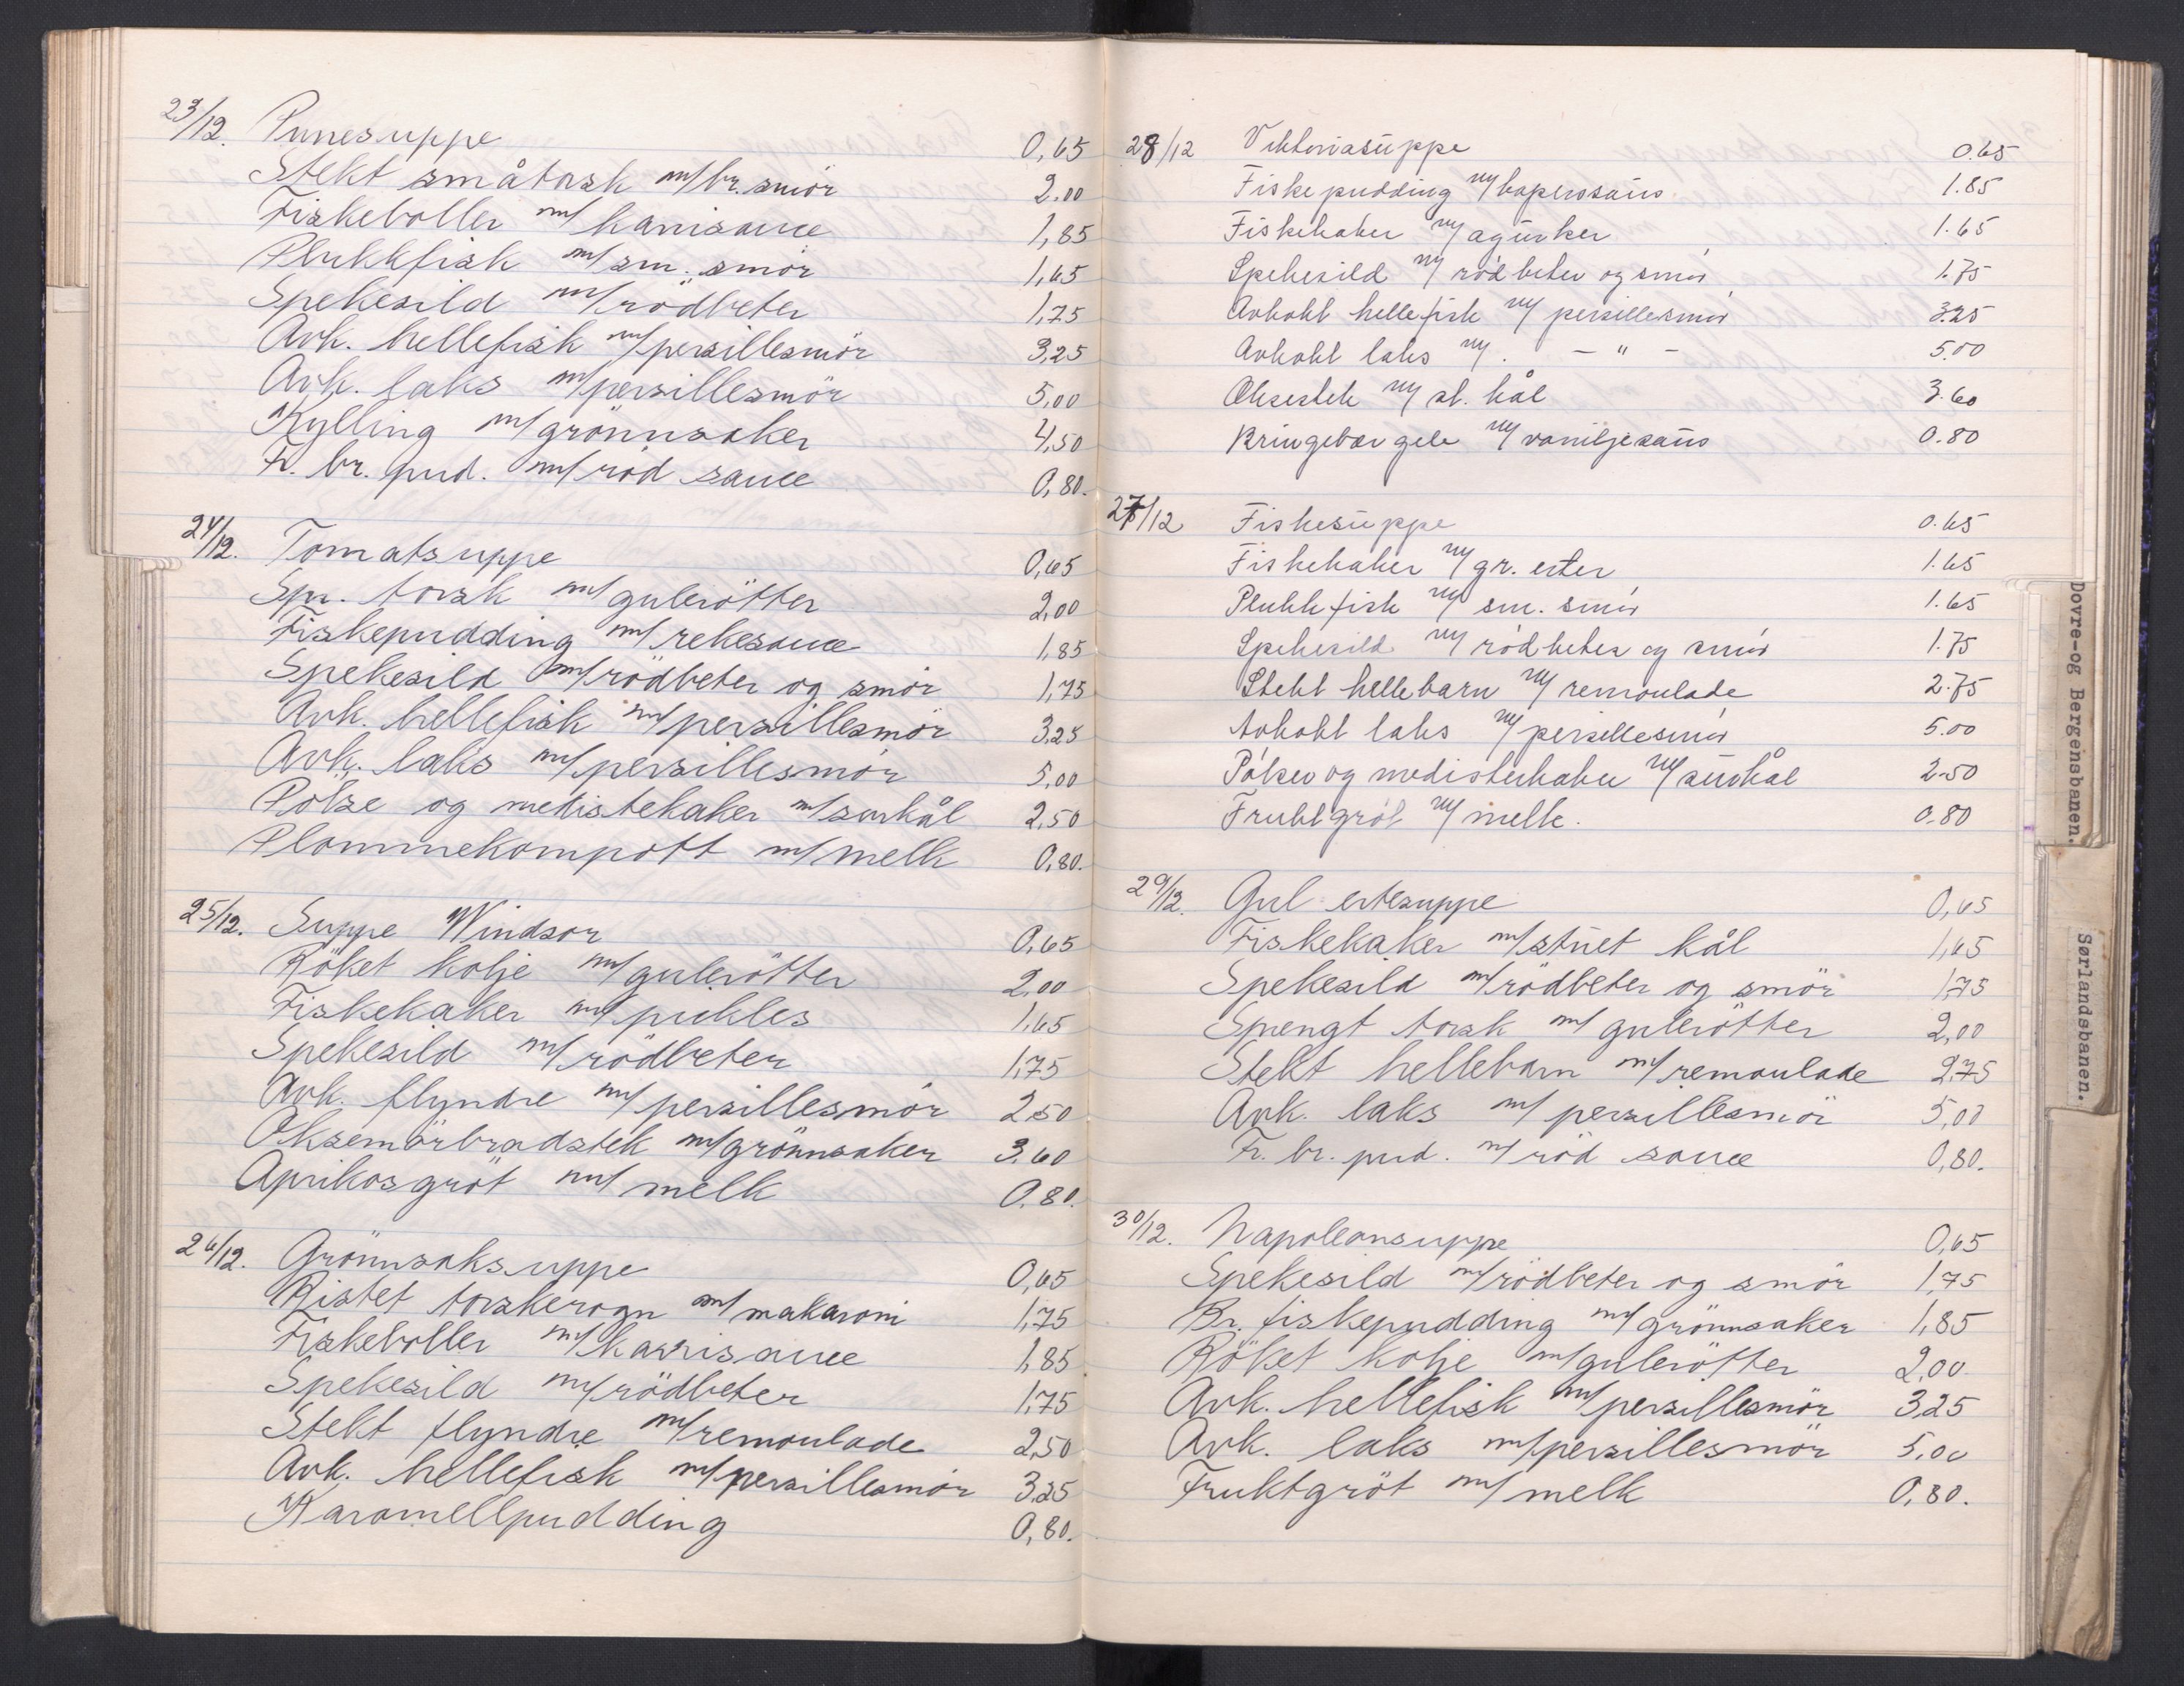 23/12. Punesuppe 0,65
Stekt småtorsk m/br. smör 2,00
Fiskeboller m/karrisauce 1,85
Plukkfisk m/sm. smör 1,65
Spekesild m/rödbeter 1,75
Avk. hellefisk m/persillesmör 3,25
Avk. laks m/persillesmör 5,00
Kylling m/grönnsaker 4,50
Fr. br. pud. m/röd sauce 0,80.
24/12. Tomatsuppe 0,65
Spr. torsk m/gulerötter 2,00
Fiskepudding m/rekesauce 1,85
Spekesild m/rödbeter og smör 1,75
Avk. hellefisk m/persillesmör 3,25
Avk. laks m/persillesmör 5,00
Pölse og medistekaker m/surkål 2,50
Plommekompott m/melk 0,80.
25/12. Suppe Windsor 0,65
Röket kolje m/gulerötter 2,00
Fiskekaker m/pickles 1,65
Spekesild m/rödbeter 1,75
Avk. flyndre m/persillesmör 2,50
Oksemörbradstek m/grönnsaker 3,60
Aprikosgröt m/melk 0,80.
26/12. Grönnsaksuppe 0,65
Ristet torskerogn m/makaroni 1,75
Fiskeboller m/karrisauce 1,85
Spekesild m/rödbeter 1,75
Stekt flyndre m/remoulade 2,50
Avk. hellefisk m/persillesmör 3,25
Karamellpudding 0,80.
28/12 Viktoriasuppe 0.65
Fiskepudding m/kaperssaus 1.85
Fiskekaker m/agurker 1.65
Spekesild m/rödbeter og smör 1.75
Avkokt hellefisk m/persillesmör 3.25
Avkokt laks m/. - " - 5.00
Oksestek m/st. kål 3.60
Bringebær gele m/vaniljesaus 0.80
27/12 Fiskesuppe 0.65
Fiskekaker m/gr. erter 1.65
Plukkfisk m/sm. smör 1.65
Spekesild m/rödbeter og smör 1.75
Stekt hellebarn m/remoulade 2.75
Avkokt laks m/persillesmör 5.00
Pölser og medisterkaker m/surkål 2.50
Fruktgröt m/melk. 0.80
29/12. Gul ertesuppe 0,65
Fiskekaker m/stuet kål 1,65
Spekesild m/rödbeter og smör 1,75
Sprengt torsk m/gulerötter 2,00
Stekt hellebarn m/remoulade 2,75
Avk. laks m/persillesmör 5,00
Fr. br. pud. m/röd sauce 0,80.
30/12. Napoleonsuppe 0,65
Spekesild m/rödbeter og smör 1,75
Br. fiskepudding m/grönnsaker 1,85
Röket kolje m/gulerötter 2,00
Avk. hellefisk m/persillesmör 3,25
Avk. laks m/persillesmör 5,00
Fruktgröt m/melk 0,80.
Dovre-og Bergensbanen.
Sørlandsbanen.